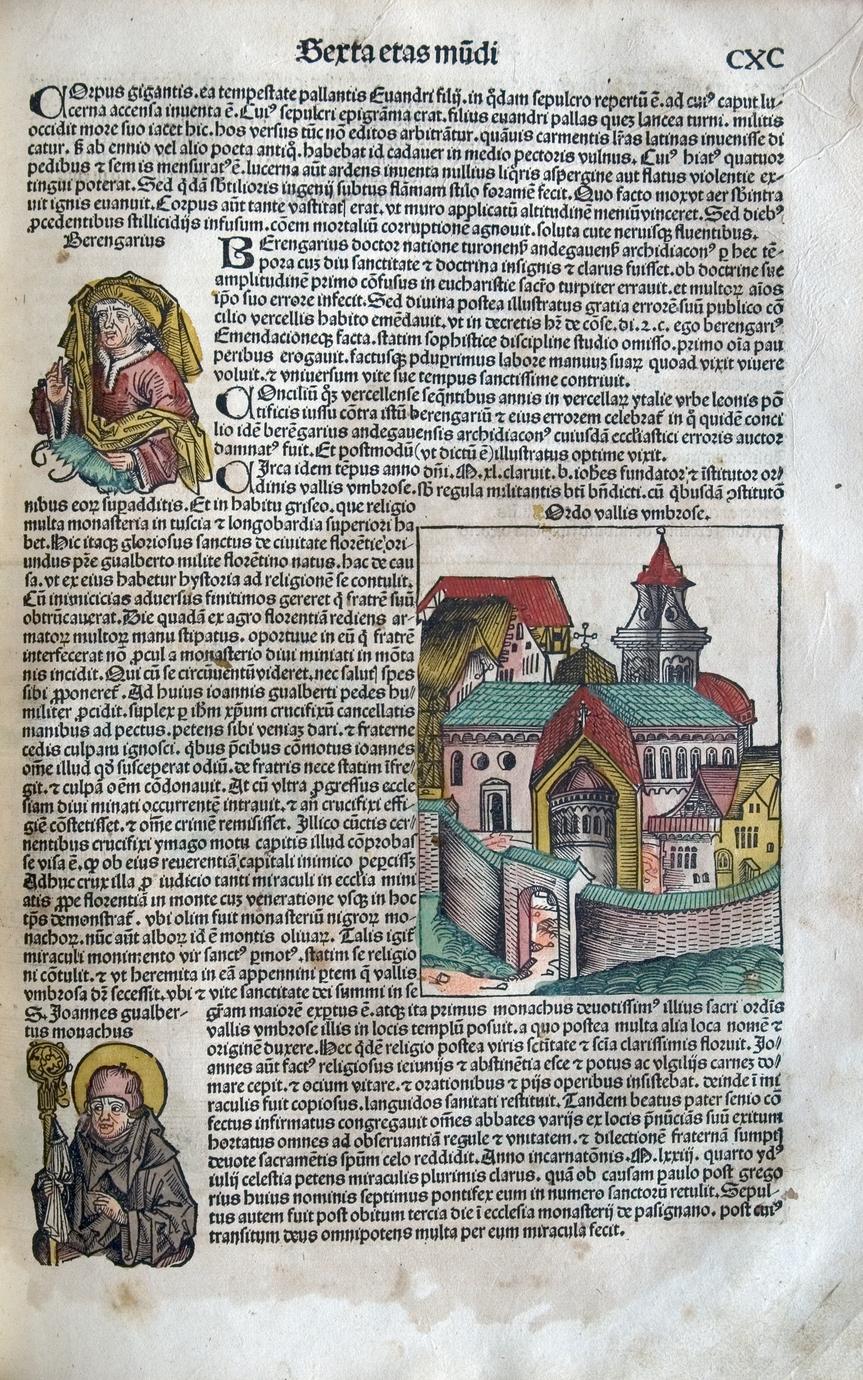 Sexta etas mūdi
CXC
COrpus gigantis. ea tempestate pallantis Euandri filij. in q̄dam sepulcro repertū ē. ad cuiꝰ caput lu-
cerna accensa inuenta ē. Cuiꝰ sepulcri epigrāma erat. filius euandri pallas quez lancea turni. militis
occidit more suo iacet hic. hos versus tūc nō editos arbitrātur. quāuis carmentis lr̄as latinas inuenisse di
catur. ꝑ ab ennio vel alio poeta antiq̄. habebat id cadauer in medio pectoris vulnus. Cuiꝰ hiatꝰ quatuor
pedibus ⁊ semis mensuratꝰ ē. lucerna aūt ardens inuenta nullius liq̄ris aspergine aut flatus violentie ex-
tingui poterat. Sed q̄dā sb̄tilioris ingenij subtus flāmam stilo foramē fecit. Quo facto mox vt aer sb̄intra
uit ignis euanuit. Corpus aūt tante vastitatꝭ erat. vt muro applicatū altitudinē meniū vinceret. Sed diebꝰ
ꝓcedentibus stillicidijs infusum. cōem mortaliū corruptionē agnouit. soluta cute neruisqꝫ fluentibus.
Berengarius
BErengarius doctor natione turonens̄ andegauens̄ archidiaconꝰ ꝑ hec tē-
pora cuz diu sanctitate ⁊ doctrina insignis ⁊ clarus fuisset. ob doctrine sue
amplitudinē primo cōfusus in eucharistie sacr̄o turpiter errauit. et multoꝝ aīos
ip̄o suo errore infecit. Sed diuina postea illustratus gratia errorē suū publico cō
cilio vercellis habito emēdauit. vt in decretis hr̄ de cōse. di. 2. c. ego berengariꝰ
Emendacioneqꝫ facta. statim sophistice discipline studio omisso. primo oīa pau
peribus erogauit. factusqꝫ pauꝑrimus labore manuuz suaꝝ quoad vixit viuere
voluit. ⁊ vniuersum vite sue tempus sanctissime contriuit.
COnciliū qꝫ vercellense seq̄ntibus annis in vercellaꝝ ytalie vrbe leonis pō
tificis iussu cōtra istū berengariū ⁊ eius errorem celebrat̄ in q̄ quidē conci
lio idē berēgarius andegauensis archidiaconꝰ cuiusdā eccl̄iastici erroris auctor
damnatꝰ fuit. Et postmodū (vt dictū ē) illustratus optime vixit.
CIrca idem tēpus anno dn̄i. M. xl. claruit. b. ioh̄es fundator ⁊ īstitutor or-
dinis vallis vmbrose. sb̄ regula militantis bt̄i bn̄dicti. cū q̄busdā ꝯstitutō
nibus eoꝝ suꝑadditis. Et in habitu griseo. que religio
multa monasteria in tuscia ⁊ longobardia superiori ha
bet. Hic itaqꝫ gloriosus sanctus de ciuitate florētie ori-
undus pr̄e gualberto milite florētino natus. hac de cau
sa. vt ex eius habetur hystoria ad religionē se contulit.
Cū inimicicias aduersus finitimos gereret q̄ fratrē suū
obtrūcauerat. Die quadā ex agro florentiā rediens ar-
matoꝝ multoꝝ manu stipatus. oportuue in eū q̄ fratrē
interfecerat nō ꝓcul a monasterio diui miniati in mōta
nis incidit. Qui cū se circūuentū videret. nec salutꝭ spes
sibi ꝓponeret̄. Ad huius ioannis gualberti pedes hu-
militer ꝓcidit. suplex ꝑ ib̄m xp̄um crucifixū cancellatis
manibus ad pectus. petens sibi veniaz dari. ⁊ fraterne
cedis culpam ignosci. q̄bus p̄cibus cōmotus ioannes
om̄e illud qd̄ susceperat odiū. de fratris nece statim īfre-
git. ⁊ culpā oēm cōdonauit. At cū vltra ꝓgressus eccle
siam diui minati occurrentē intrauit. ⁊ an̄ crucifixi effi-
giē cōstetisset. ⁊ om̄e crimē remisisset. Illico cūctis cer-
nentibus crucifixi ymago motu capitis illud cōprobas
se visa ē. ꝙ ob eius reuerentiā capitali inimico peꝑcisꝫ
Adhuc crux illa ꝓ iudicio tanti miraculi in eccl̄ia mini
atis ꝓpe florentiā in monte cuz veneratione vsqꝫ in hoc
tp̄s demonstrat̄. vbi olim fuit monasteriū nigroꝝ mo-
nachoꝝ. nūc aūt alboꝝ id ē montis oliuaꝝ. Talis igit̄
miraculi monimento vir sanctꝰ ꝑmotꝰ. statim se religio
ni cōtulit. ⁊ vt heremita in eā appennini ꝑtem q̄ vallis
vmbrosa dr̄ secessit. vbi ⁊ vite sanctitate dei summi in se
Ordo vallis vmbrose.
S. Joannes gualber-
tus monachus
gr̄am maiorē exꝑtus ē. atqꝫ ita primus monachus deuotissimꝰ illius sacri ordīs
vallis vmbrose illis in locis templū posuit. a quo postea multa alia loca nomē ⁊
originē duxere. Hec q̄dē religio postea viris sc̄titate ⁊ sc̄ia clarissimis floruit. Jo-
annes aūt factꝰ religiosus ieiunijs ⁊ abstinētia esce ⁊ potus ac vigilijs carnez do-
mare cepit. ⁊ ocium vitare. ⁊ orationibus ⁊ pijs operibus insistebat. deinde ī mi
raculis fuit copiosus. languidos sanitati restituit. Tandem beatus pater senio cō
fectus infirmatus congregauit om̄es abbates varijs ex locis p̄nūciās suū exitum
hortatus omnes ad obseruantiā regule ⁊ vnitatem. ⁊ dilectionē fraternā sumptꝭ
deuote sacramētis sp̄um celo reddidit. Anno incarnatōnis. M. lxxiij. quarto ydꝰ
iulij celestia petens miraculis plurimis clarus. quā ob causam paulo post grego
rius huius nominis septimus pontifex eum in numero sanctorū retulit. Sepul-
tus autem fuit post obitum tercia die ī ecclesia monasterij de pasignano. post cuiꝰ
transitum deus omnipotens multa per eum miracula fecit.